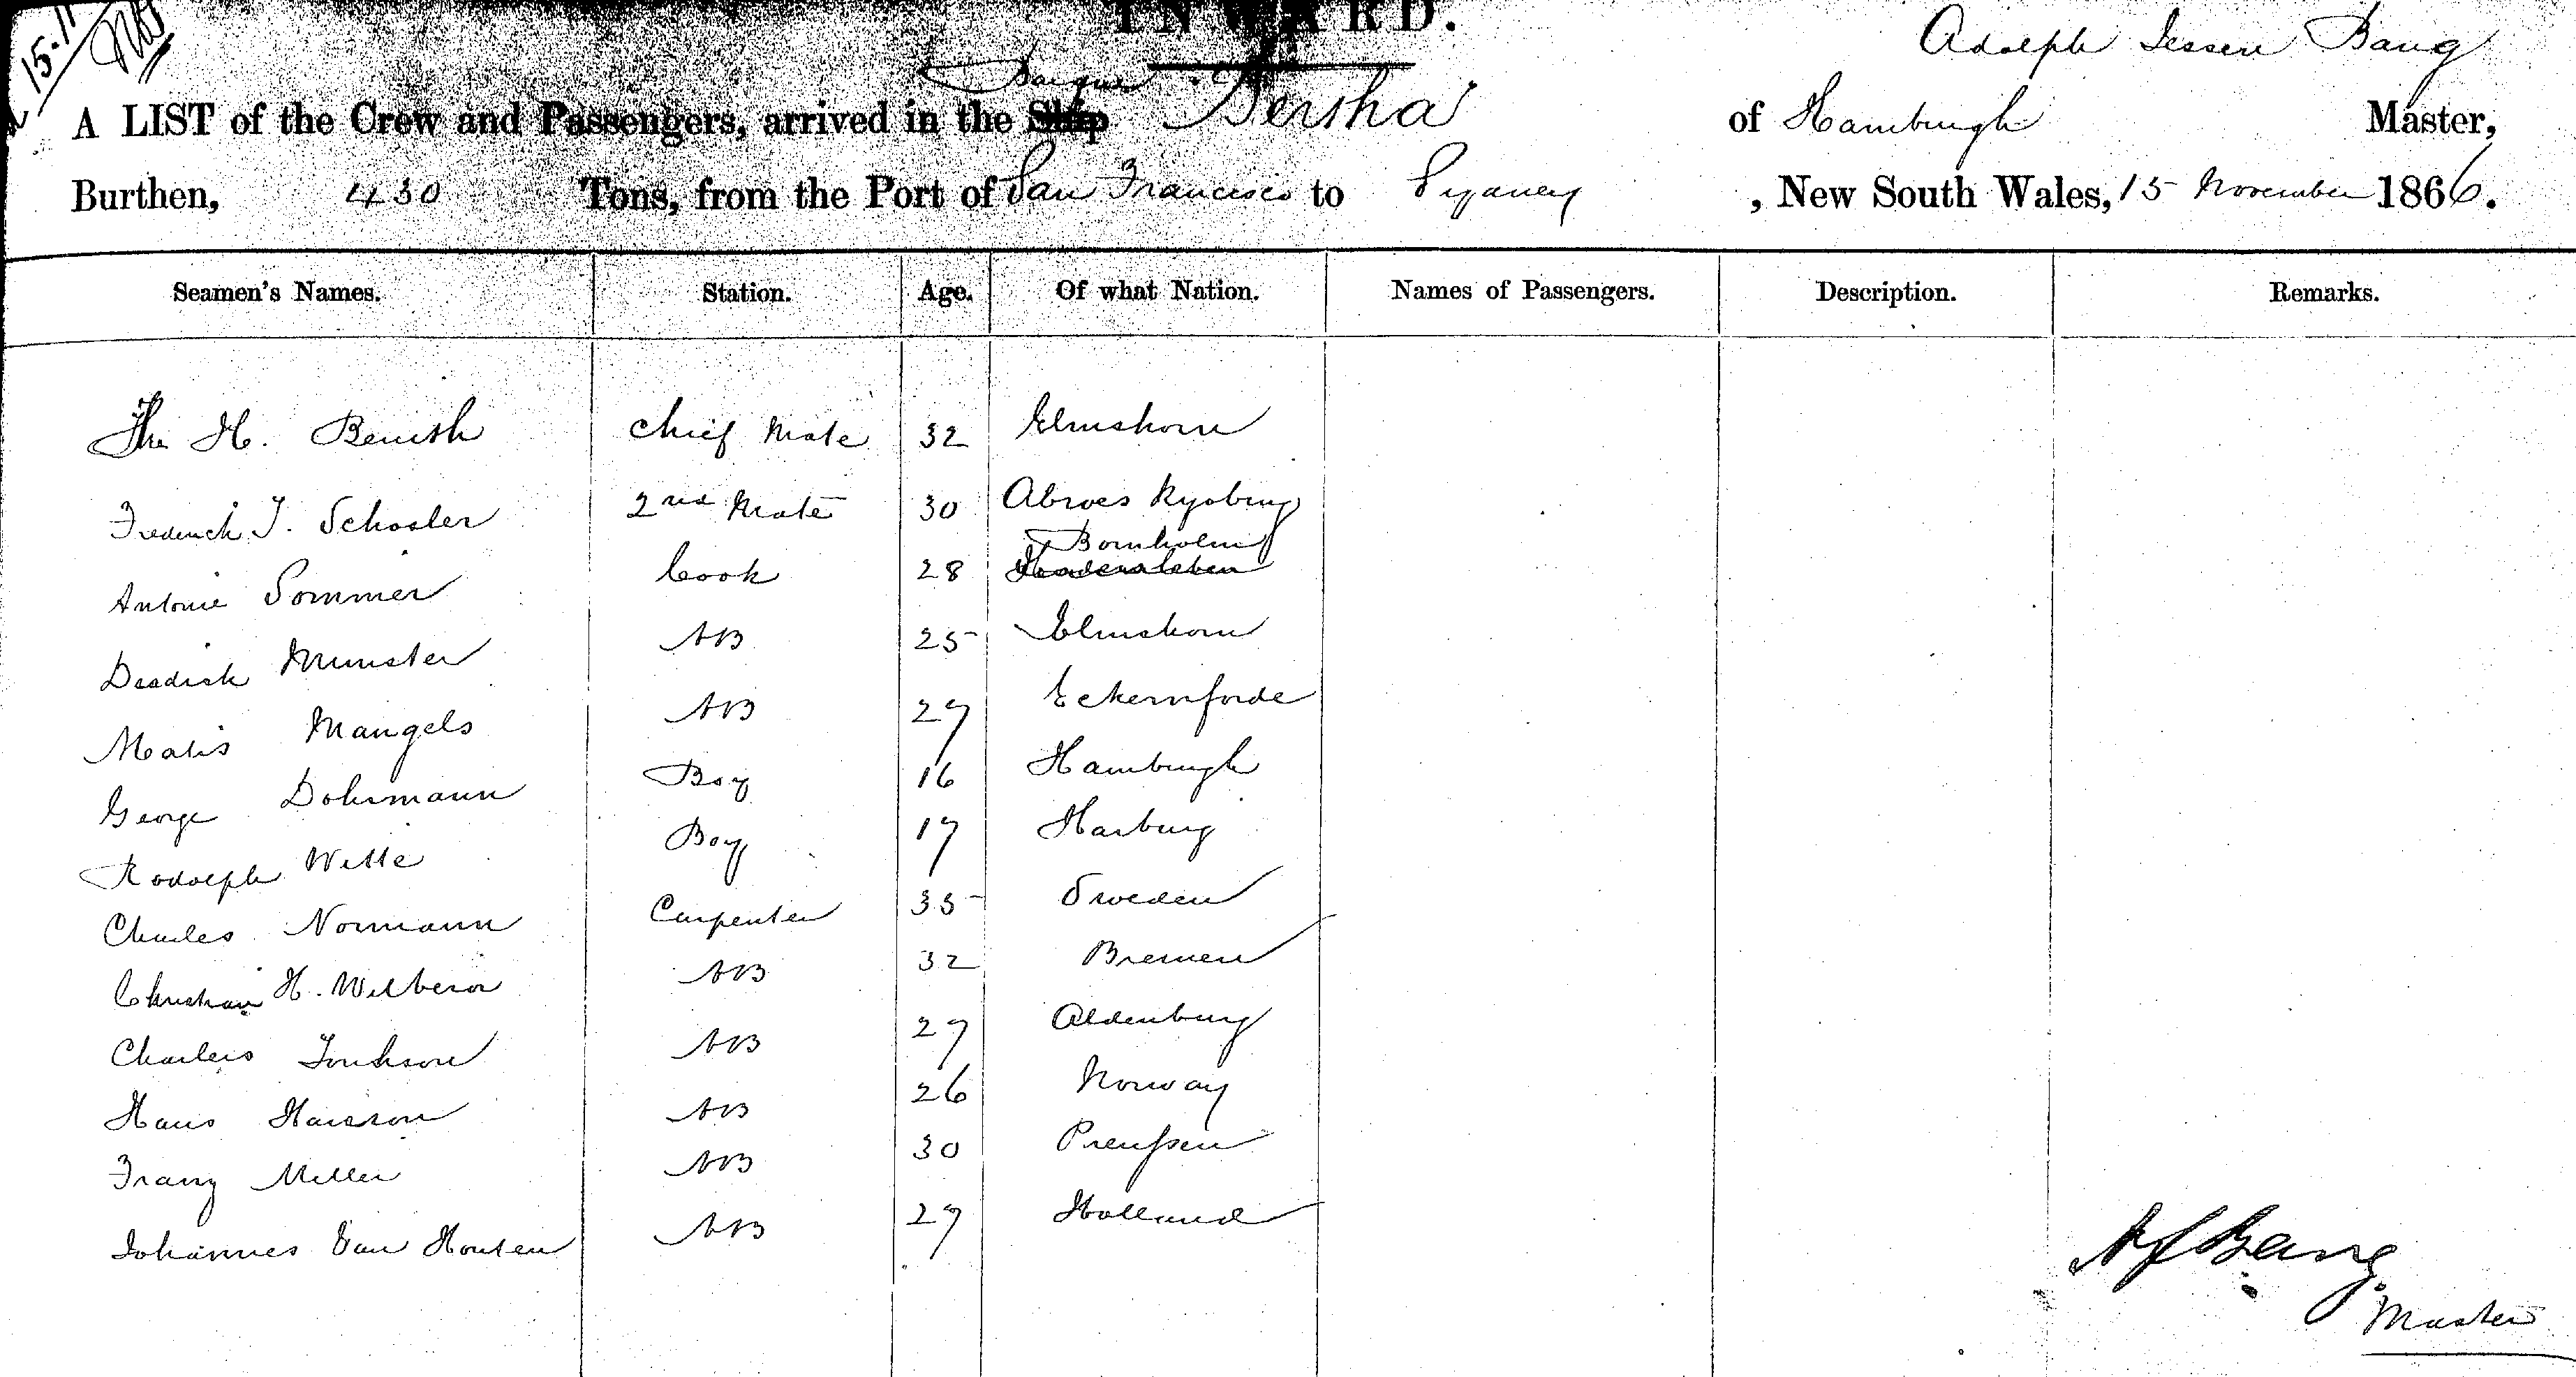 INWARD.
15.11
Adolph Jessen Bang
Barque
A LIST of the Crew and Passengers, arrived in the Ship Bertha of Hamburgh Master,
Burthen, 430 Tons, from the Port of San Francisco to Sydney, New South Wales, 15 November 1866.
Seamen's Names. Station. Age. Of what Nation. Names of Passengers. Description. Remarks.
H. chief Mate 32 Elmshorn
Frederick J. Schosler 2nd Mate 30 Abroes Kyobing
Bornholm
Antonie Sommer Cook 28 Hadersleben
Deadrick Munster AB 25 Elmshorn
Matis Mangels AB 27 Eckernforde
George Dohrmann Boy 16 Hamburgh
Rodolph Witte Boy 17 Harburg
Charles Normann Carpenter 35 Sweden
Christian H. AB 32 Bremen
Charles AB 27 Oldenburg
Hans Hansson AB 26 Norway
Franz Miller AB 30 Preussen
Johannes Van Houten AB 27 Holland
AJ Bang
Master